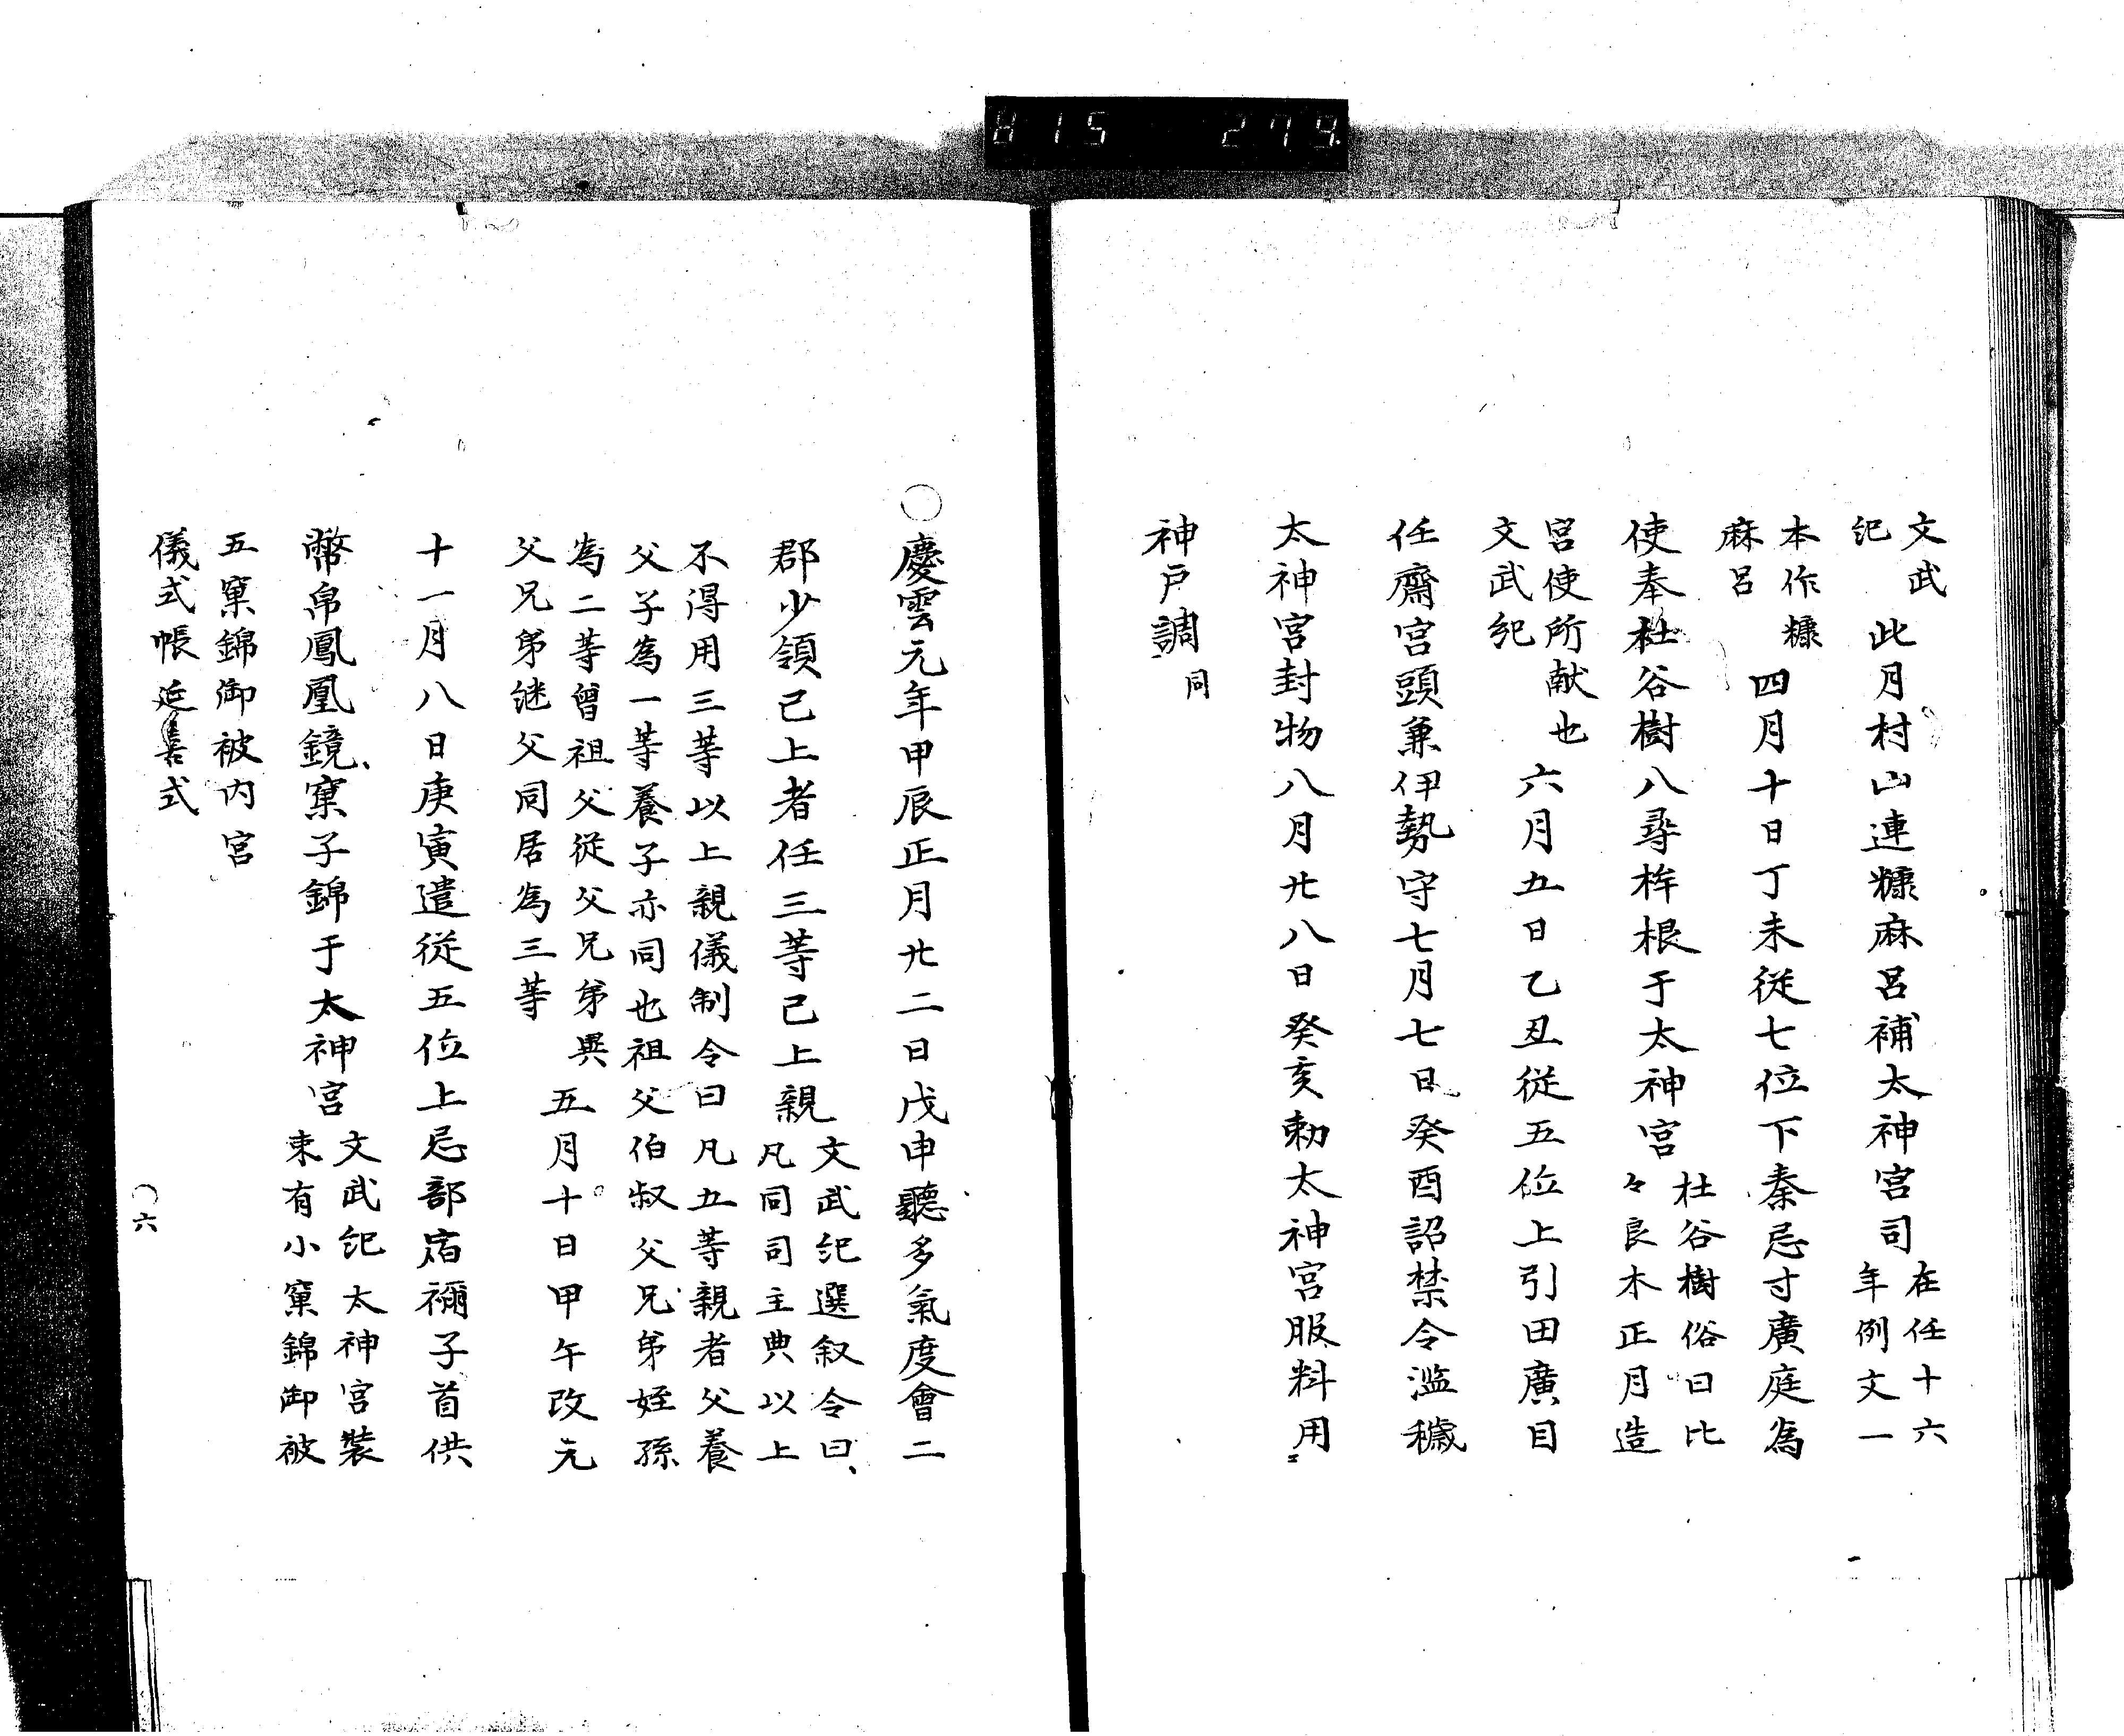 H15 279.
文武
紀
此月村山連糠麻呂補太神宮司
在任十六
年例文一
本作糠
麻呂
四月十日丁未従七位下秦忌寸廣庭為
使奉杜谷樹八尋桙根于太神宮
杜谷樹俗曰比
々良木正月造
宮使所献也
文武紀
六月五日乙丑従五位上引田廣目
任齋宮頭兼伊勢守七月七日癸酉詔禁令濫穢
太神宮封物八月廿八日癸亥勅太神宮服料用
神戸調
同
○慶雲元年甲辰正月廿二日戊申聽多氣度會二
郡少領已上者任三等已上親
文武紀選叙令曰、
凡同司主典以上
不得用三等以上親儀制令曰凡五等親者父養
父子為一等養子亦同也祖父伯叔父兄弟姪孫
為二等曾祖父従父兄弟異
父兄弟継父同居為三等
五月十日甲午改元
十一月八日庚寅遣従五位上忌部宿禰子首供
幣帛鳳凰鏡窠子錦于太神宮
文武紀太神宮装
束有小窠錦御被
五窠錦御被内宮
儀式帳延喜式
○六